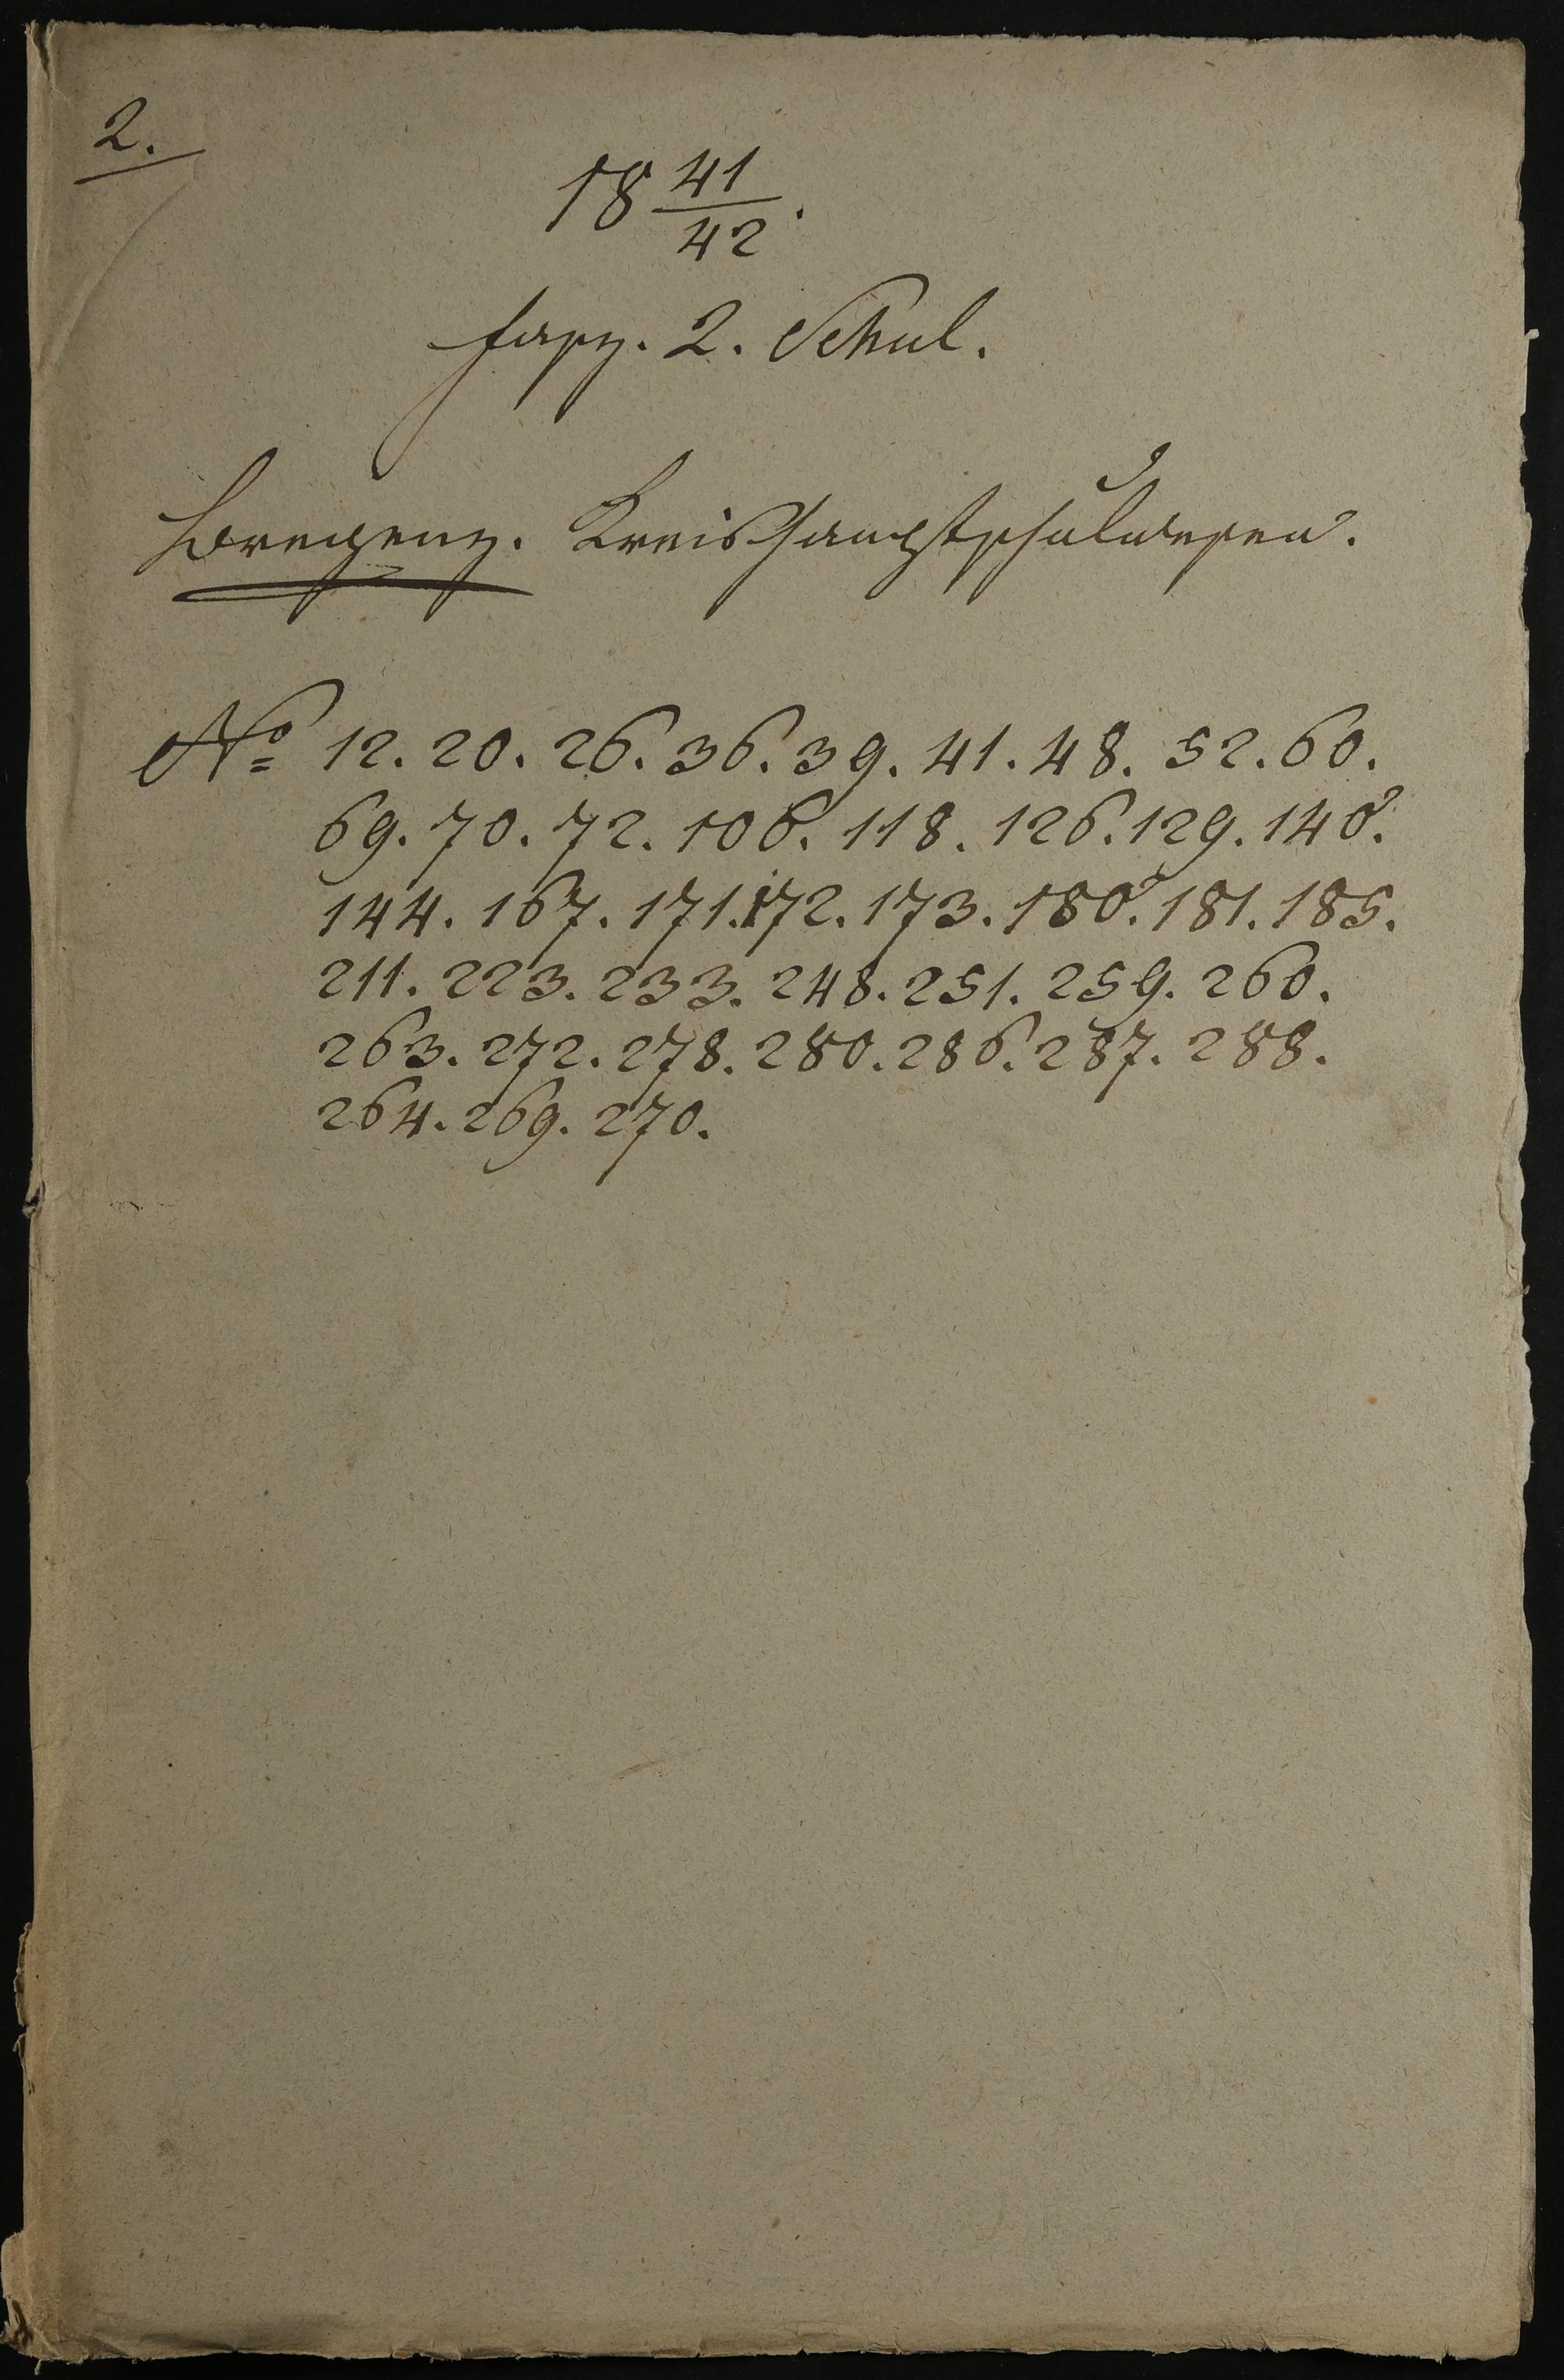 2.
18 41/42.
fasz. 2. Schul.
Bregenz. Kreishauptschulwesen.
No 12. 20. 26. 36. 39. 41. 48. 52. 60.
69. 70. 72. 106. 118. 126. 129. 140.
144. 167. 171. 172. 173. 180. 181. 185.
211. 223. 233. 248. 251. 259. 260.
263. 272. 278. 280. 286. 287. 288.
264. 269. 270.